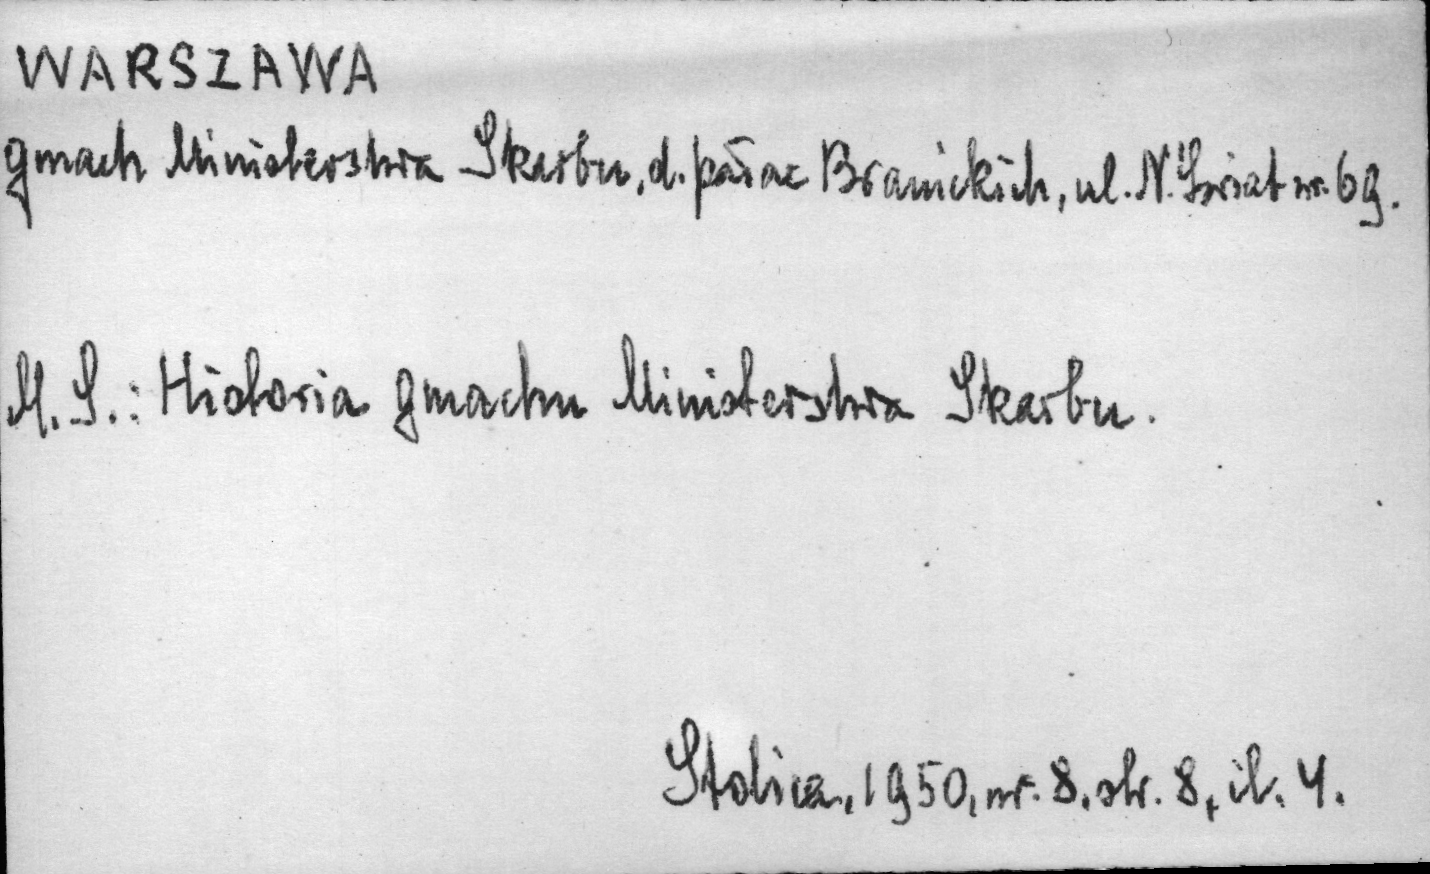 WARSZAWA
gmach Ministerstwa Skarbu, d. pałac Branickich, ul. N. Świat nr. 69.
M. S.: Historia gmachu Ministerstwa Skarbu.
Stolica, 1950, nr. 8, str. 8, il. 4.